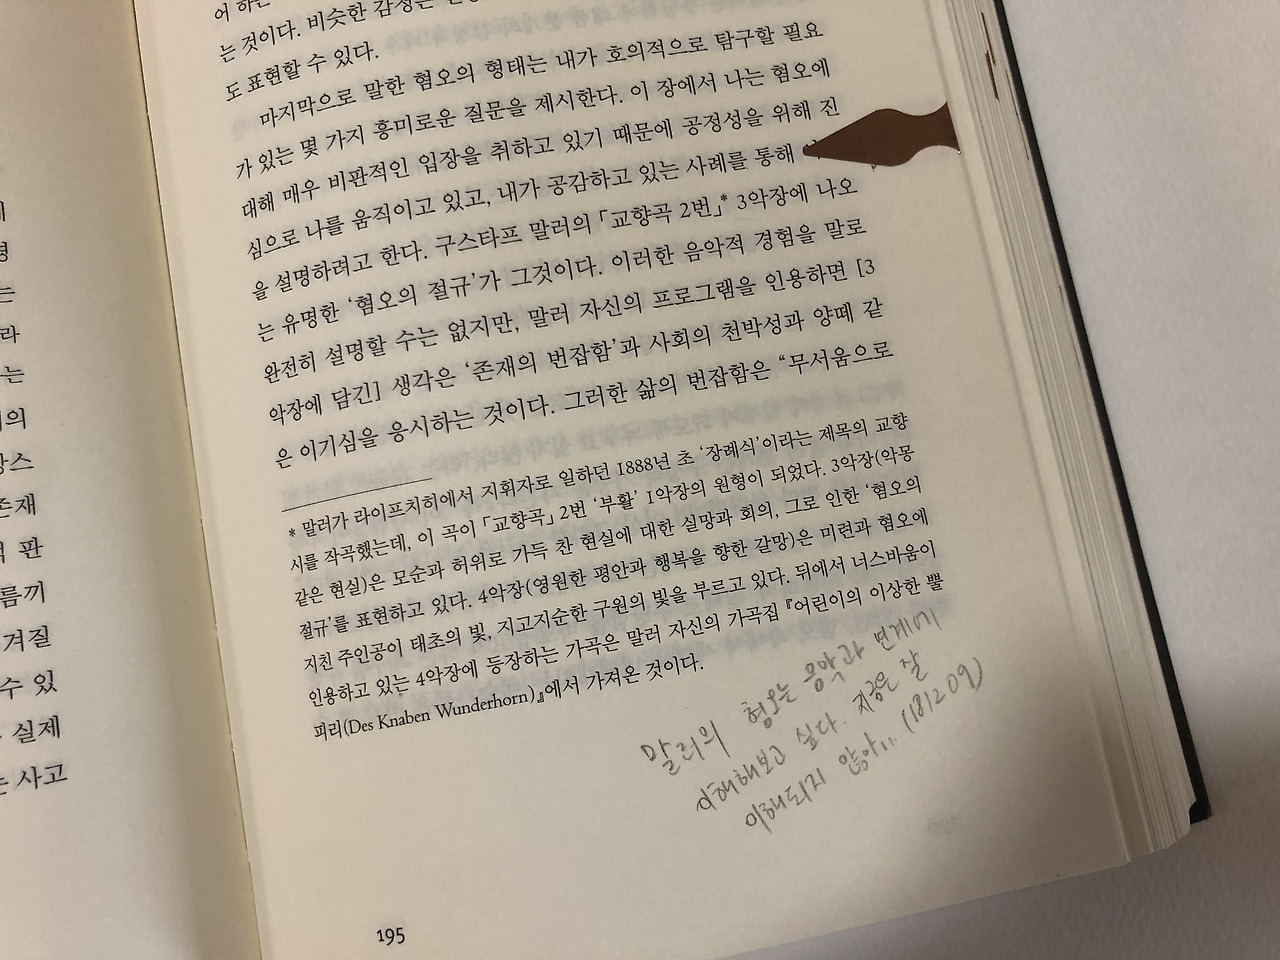 어 하는
는 것이다. 비슷한 감정은
도 표현할 수 있다.
마지막으로 말한 혐오의 형태는 내가 호의적으로 탐구할 필요
가 있는 몇 가지 흥미로운 질문을 제시한다. 이 장에서 나는 혐오에
대해 매우 비판적인 입장을 취하고 있기 때문에 공정성을 위해 진
심으로 나를 움직이고 있고, 내가 공감하고 있는 사례를 통해
을 설명하려고 한다. 구스타프 말러의 「교향곡 2번」* 3악장에 나오
는 유명한 ‘혐오의 절규’가 그것이다. 이러한 음악적 경험을 말로
완전히 설명할 수는 없지만, 말러 자신의 프로그램을 인용하면 [3
악장에 담긴] 생각은 ‘존재의 번잡함’과 사회의 천박성과 양떼 같
은 이기심을 응시하는 것이다. 그러한 삶의 번잡함은 “무서움으로
* 말러가 라이프치히에서 지휘자로 일하던 1888년 초 ‘장례식’이라는 제목의 교향
시를 작곡했는데, 이 곡이 「교향곡」 2번 ‘부활’ 1악장의 원형이 되었다. 3악장(악몽
같은 현실)은 모순과 허위로 가득 찬 현실에 대한 실망과 회의, 그로 인한 ‘혐오의
절규’를 표현하고 있다. 4악장(영원한 평안과 행복을 향한 갈망)은 미련과 혐오에
지친 주인공이 태초의 빛, 지고지순한 구원의 빛을 부르고 있다. 뒤에서 너스바움이
인용하고 있는 4악장에 등장하는 가곡은 말러 자신의 가곡집 『어린이의 이상한 뿔
피리(Des Knaben Wunderhorn)』에서 가져온 것이다.
말러의 혐오는 음악과 연계해
이해해보고 싶다. 지금은 잘
이해되지 않아.. (181209)
195
라
는
의
존재
판
름끼
겨질
수 있
실제
는 사고